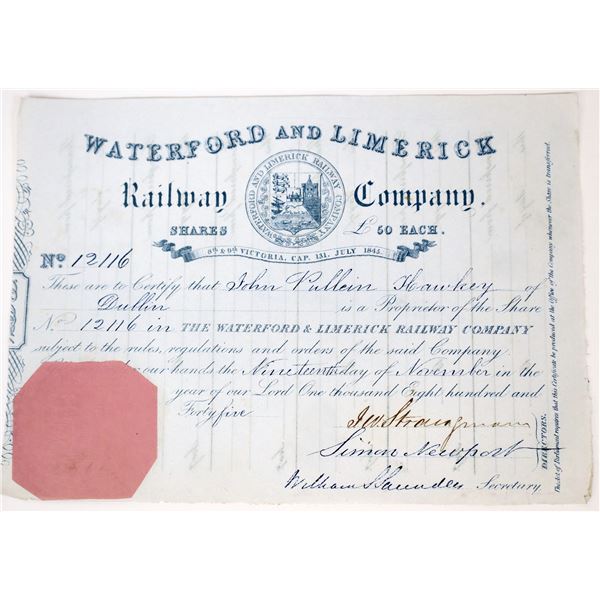 WATERFORD AND LIMERICK
Railway Company.
WATERFORD AND LIMERICK RAILWAY COMPANY
SHARES £50 EACH.
8th & 9th VICTORIA, CAP. 131, JULY 1845.
No. 12116
These are to Certify that John Pullein Hawkey of
Dublin is a Proprietor of the Share
No. 12116 in THE WATERFORD & LIMERICK RAILWAY COMPANY
subject to the rules, regulations and orders of the said Company.
our hands the Nineteenth day of November in the
year of our Lord One thousand Eight hundred and
Forty five
J W Strangman
Simon Newport
William S Saunders Secretary.
DIRECTORS.
The Act of Parliament requires that this Certificate be produced at the Office of the Company whenever the Share is transferred.